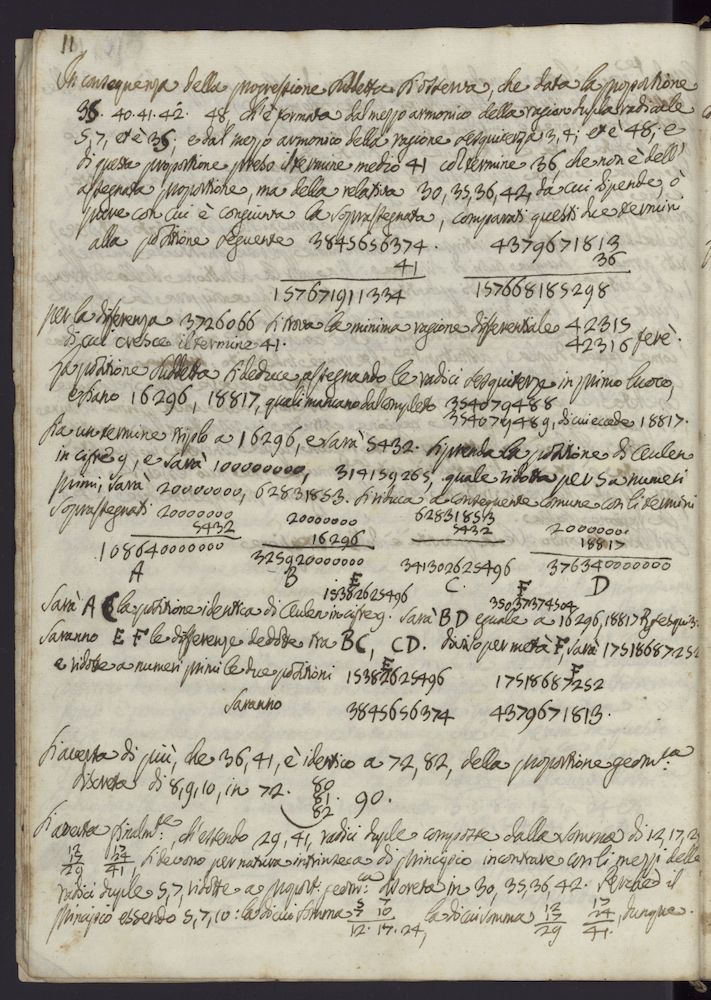 11
In conseguenza della progressione suddetta si osserva, che data la proporzione
36. 40. 41. 42. 48, ch'è formata dal mezzo armonico della ragion dupla radicale
5, 7, et è 35, e dal mezzo armonico della ragione sesquiterza 3, 4; et è 48; e
di questa proporzione preso il termine medio 41 col termine 36, che non è dell'
assegnata proporzione, ma della relativa 30, 35, 36, 42, da cui dipende, ò
pure con cui è congiunta la soprassegnata, comparati questi due termini
alla posizione seguente 3845656374. 4379671813
41 36
157671911334 157668185298
per la differenza 3726066 si trova la minima ragione differenziale 42315
di cui cresce il termine 41. 42316 ferè.
La posizione suddetta si deduce assegnando le radici sesquiterze in primo luoco,
e siano 16296, 18817, quali mancano dal completo 354079488
354079489, di cui eccede 18817.
Sia un termine triplo a 16296, e sarà 5432. Si prenda la posizione di Ceulen
in cifre 9, e sarà 100000000, 314159265, quale ridotta per 5 a numeri
primi, sarà 20000000, 62831853. Si riduca a conseguente comune con li termini
soprassegnati 20000000 20000000 62831853 20000000
5432 16296 5432 18817
108640000000 325920000000 341302625496 376340000000
A B C D
E F
15382625496 35037374504
Sarà A C la posizione identica di Ceulen in cifre 9. Sarà B D eguale a 16296, 18817
Saranno E F le differenze dedotte tra BC, CD. diviso per metà F, sarà 17518687252
e ridotte a numeri primi le due posizioni E 15382625496 F 17518687252
Saranno 3845656374 4379671813.
Si averta di più, che 36, 41, è identico a 72, 82, della proporzione geom:ca
discreta di 8, 9, 10, in 72. 80 81. 82 90.
Si averta finalm:te, ch'essendo 29, 41, radici duple composte dalla somma di 12, 17, 24
12 17
17 24
29 41, si devono per natura intrinseca di principio incontrare con li mezzi delle
radici duple 5, 7, ridotte a proport: geom:ca discreta in 30, 35, 36, 42. Perchè il
principio essendo 5, 7, 10: la di cui somma 5 7 la di cui somma 12 17
7 10 17 24, dunque.
12. 17. 24, 29 41.